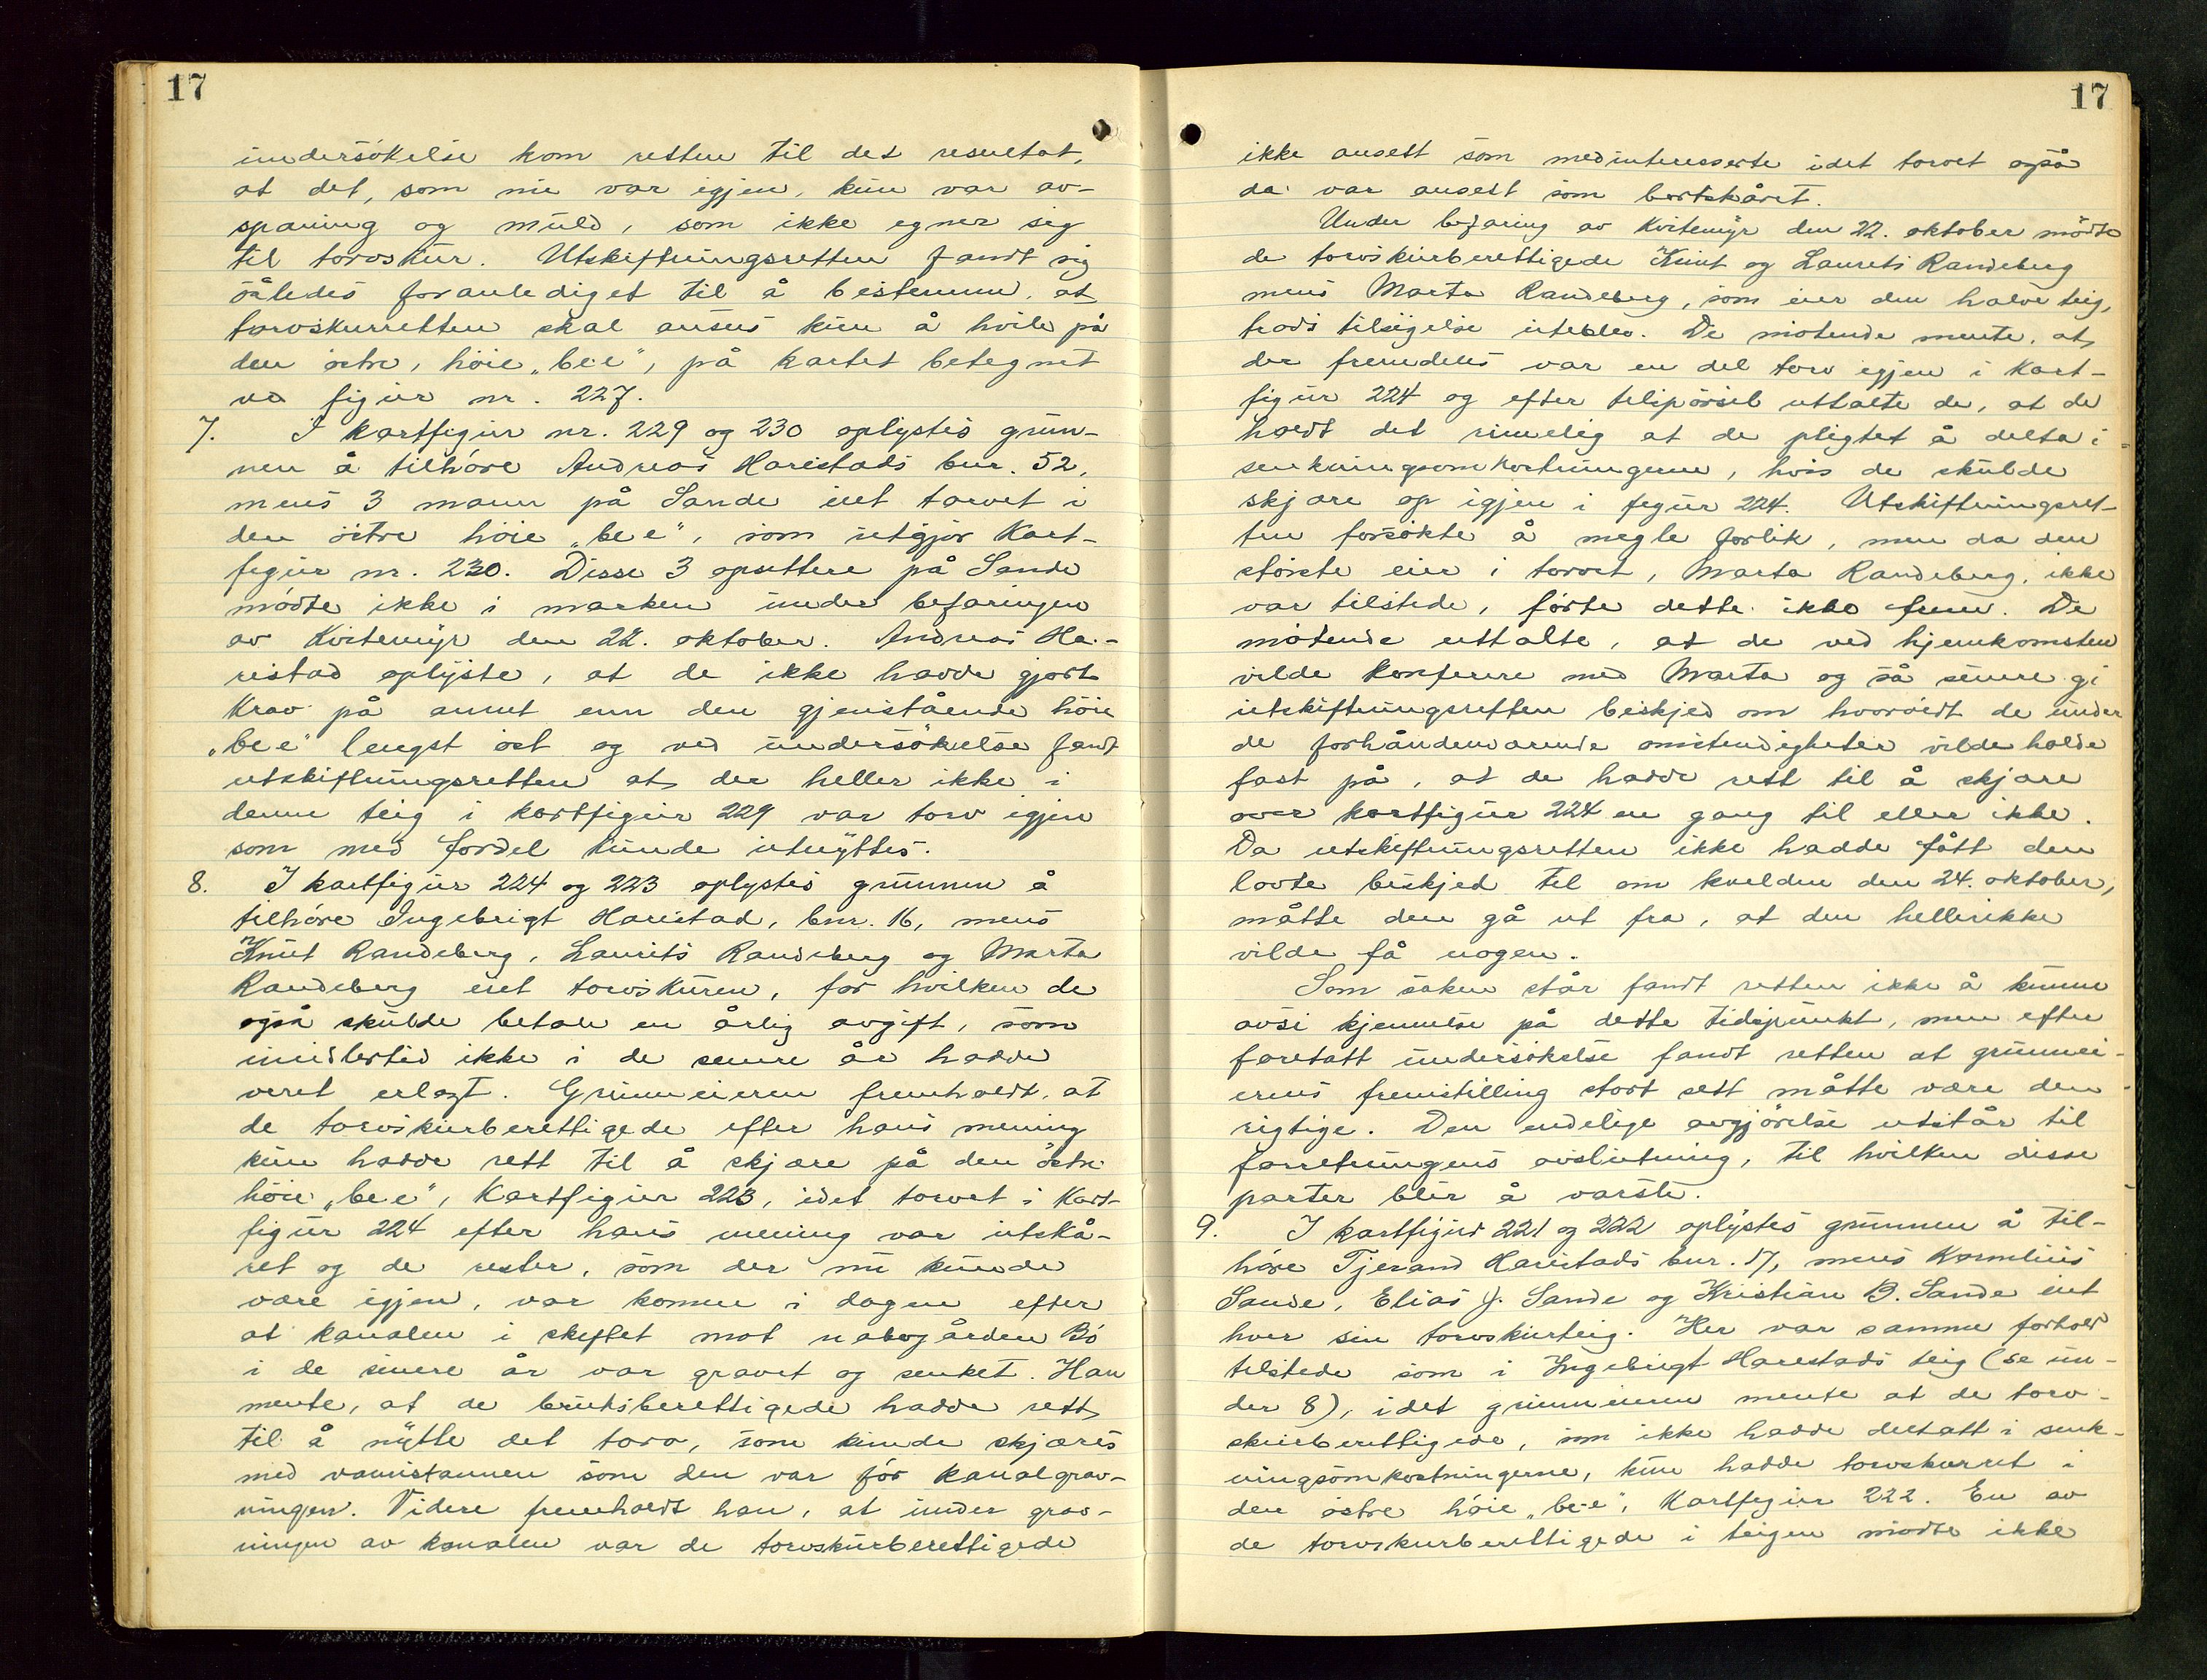 17
undersökelse kom retten til det resultat,
at det, som nu var igjen, kun var av-
spaning og muld, som ikke egner sig
til torvskur. Utskiftningsretten fandt sig
således foranlediget til å bestemme, at
torvskurretten skal ansees kun å hvile på
den östre, höie „bee", på kartet betegnet
ved figur nr. 227.
7. I kartfigur nr. 229 og 230 oplystes grun-
nen å tilhöre Andreas Harestads bnr. 52,
mens 3 mann på Sande eiet torvet i
den östre höie „bee", som utgjör Kart-
figur nr. 230. Disse 3 opsittere på Sande
mödte ikke i marken under befaringen
av Kvitemyr den 22. oktober. Andreas Ha-
restad oplyste, at de ikke hadde gjort
Krav på annet enn den gjenstående höie
„bee" lengst öst og ved undersökelse fandt
utskiftningsretten at der heller ikke i
denne teig i kartfigur 229 var torv igjen
som med fordel kunde utnyttes.
8. I kartfigur 224 og 223 oplystes grunnen å
tilhöre Ingebrigt Harestad, bnr. 16, mens
Knut Randeberg, Laurits Randeberg og Marta
Randeberg eiet torvskuren, for hvilken de
også skulde betale en årlig avgift, som
imidlertid ikke i de senere år hadde
veret erlagt. Grunneieren fremholdt, at
de torvskurberettigede efter hans mening
kun hadde rett til å skjære på den östre
höie „bee", Kartfigur 223, idet torvet i Kart-
figur 224 efter hans mening var utskå-
ret og de rester, som der nu kunde
være igjen, var komne i dagen efter
at kanalen i skiftet mot nabogården Bö
i de senere år var gravet og senket. Han
mente, at de bruksberettigede hadde rett
til å nytte det torv, som kunde skjæres
med vannstannen som den var för kanalgrav-
ningen. Videre fremholdt han, at under grav-
ningen av kanalen var de torvskurberettigede
17
ikke ansett som medinteresserte idet torvet også
da var ansett som bortskåret.
Under befaring av Kvitemyr den 22. oktober mödte
de torvskurberettigede Knut og Laurits Randeberg
mens Marta Randeberg, som eier den halve teig,
trods tilsigelse uteblev. De mötende mente, at
der fremdeles var en del torv igjen i Kart-
figur 224 og efter tilspörsel uttalte de, at de
holdt det rimelig at de pligtet å delta i
senkningsomkostningerne, hvis de skulde
skjære op igjen i figur 224. Utskiftningsret-
ten forsökte å megle forlik, men da den
störste eier i torvet, Marta Randeberg, ikke
var tilstede, förte dette ikke frem. De
mötende uttalte, at de ved hjemkomsten
vilde konferere med Marta og så senere gi
utskiftningsretten beskjed om hvorvidt de under
de forhåndenværende omstendigheter vilde holde
fast på, at de hadde rett til å skjære
over kartfigur 224 en gang til eller ikke.
Da utskiftningsretten ikke hadde fått den
lovte beskjed til om kvelden den 24. oktober,
måtte den gå ut fra, at den heller ikke
vilde få nogen.
Som saken står fandt retten ikke å kunne
avsi kjennelse på dette tidspunkt, men efter
foretatt undersökelse fandt retten at grunnei-
erens fremstilling stort sett måtte være den
rigtige. Den endelige avgjörelse utstår til
forretningens avslutning, til hvilken disse
parter blir å varsle.
9. I kartfigur 221 og 222 oplystes grunnen å til-
höre Tjerand Harestads bnr. 17, mens Kornelius
Sande, Elias J. Sande og Kristian B. Sande eiet
hver sin torvskurteig. Her var samme forhold
tilstede som i Ingebrigt Harestads teig (se un-
der 8), idet grunneieren mente at de torv-
skurberettigede, som ikke hadde deltatt i senk-
ningsomkostningerne, kun hadde torvskurret i
den östre höie „bee", Kartfigur 222. En av
de torvskurberettigede i teigen mödte ikke